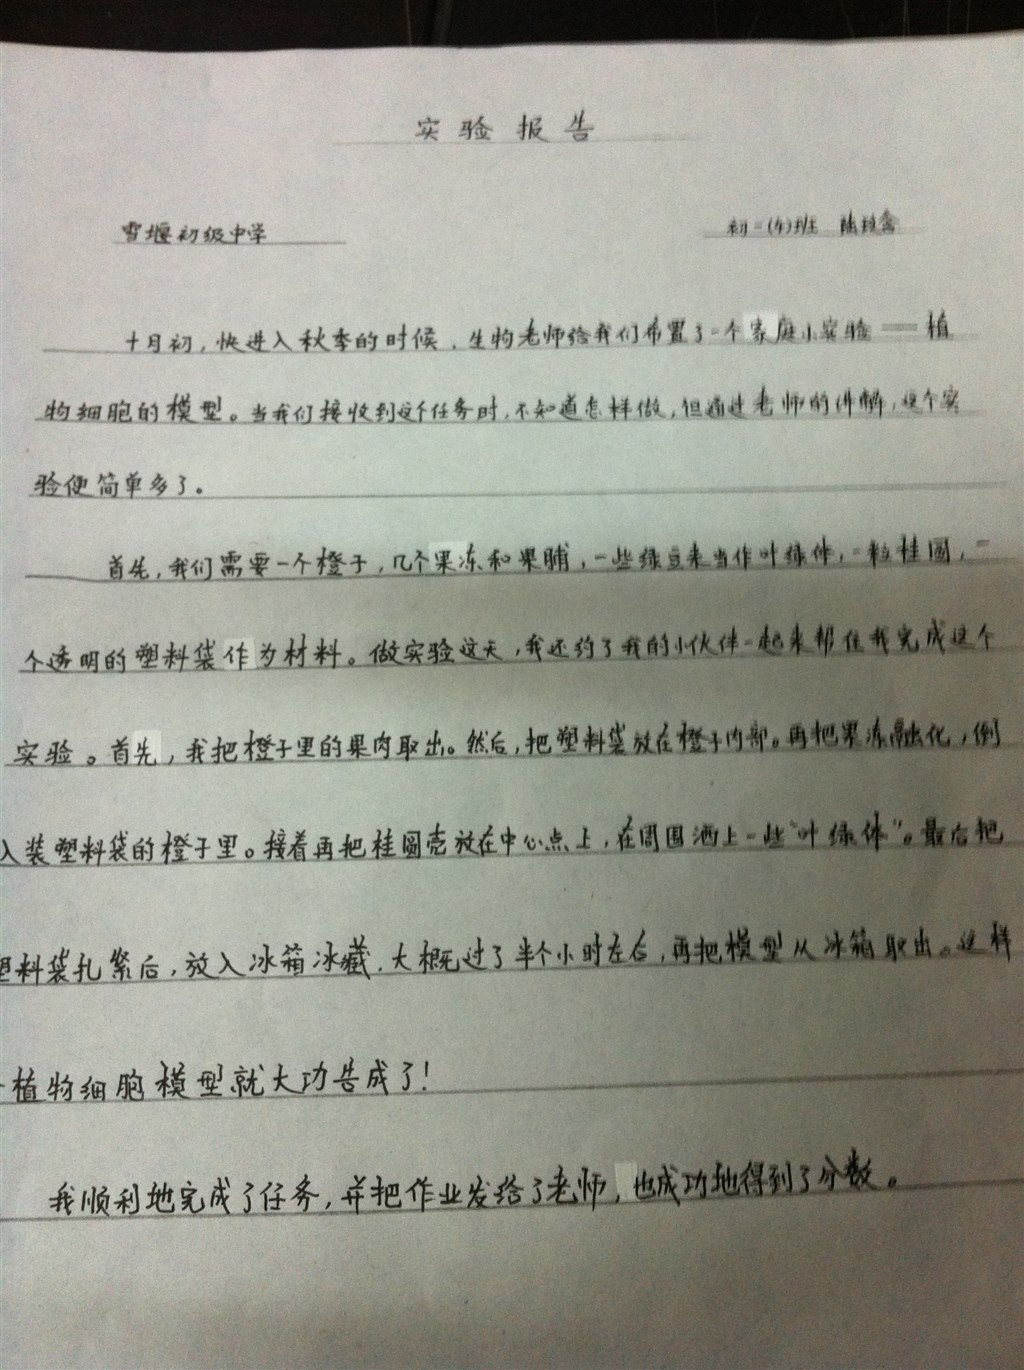 实验报告
雪堰初级中学 初一(4)班 陆
十月初，快进入秋季的时候，生物老师给我们布置了一个家庭小实验——植
物细胞的模型。当我们接收到这个任务时，不知道怎样做，但通过老师的讲解，这个实
验便简单多了。
首先，我们需要一个橙子，几个果冻和果脯，一些绿豆来当作叶绿体，一粒桂圆，一
个透明的塑料袋作为材料。做实验这天，我还约了我的小伙伴一起来帮住我完成这个
实验。首先，我把橙子里的果肉取出。然后，把塑料袋放在橙子内部。再把果冻融化，倒
入装塑料袋的橙子里。接着再把桂圆壳放在中心点上，在周围洒上一些“叶绿体”。最后把
塑料袋扎紧后，放入冰箱冰藏，大概过了半个小时左右，再把模型从冰箱取出。这样
植物细胞模型就大功告成了！
我顺利地完成了任务，并把作业发给了老师，也成功地得到了分数。